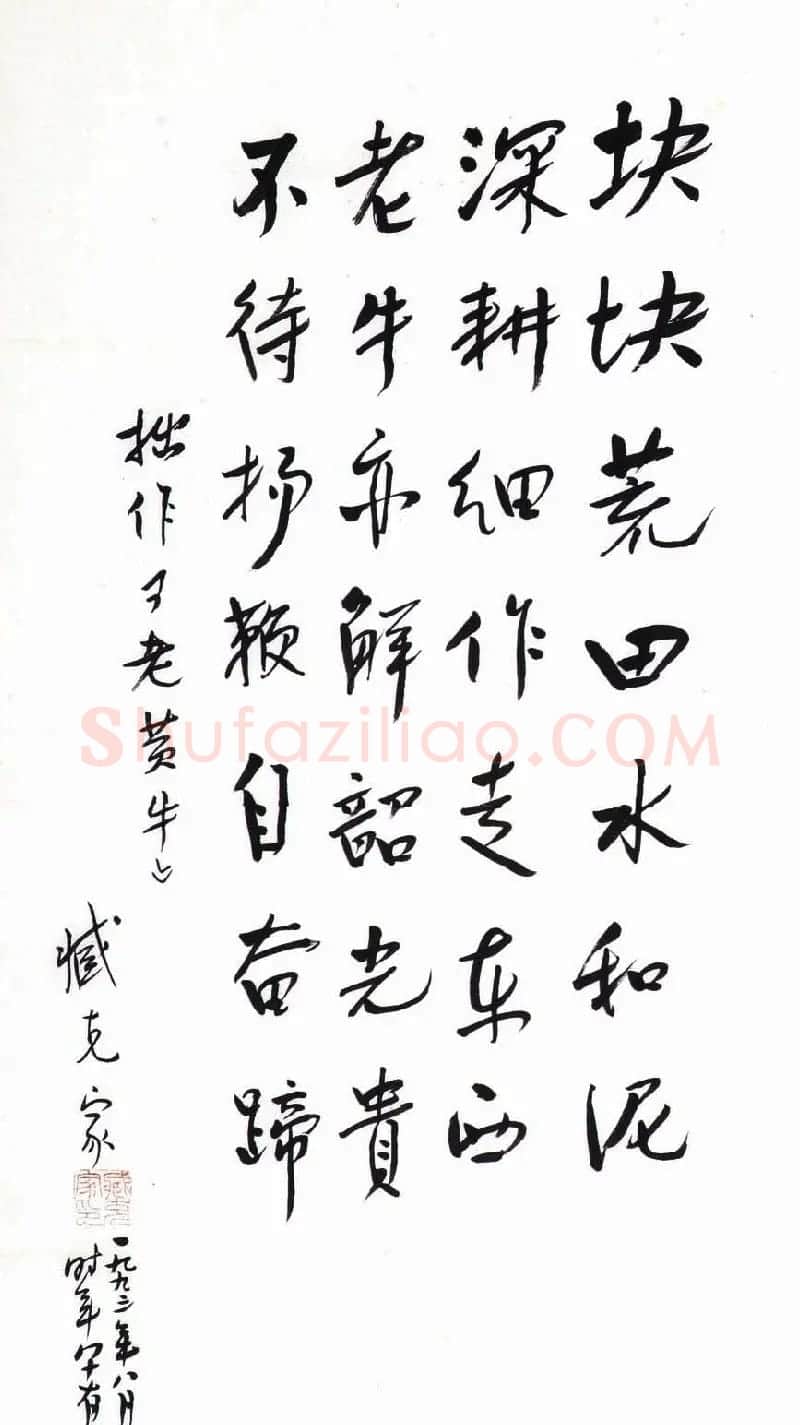 块块荒田水和泥
深耕细作走东西
老牛亦解韶光貴
不待扬鞭自奋蹄
拙作《老黄牛》
臧克家
臧克家印
一九九三年八月
时年八十有
Shufaziliao.COM